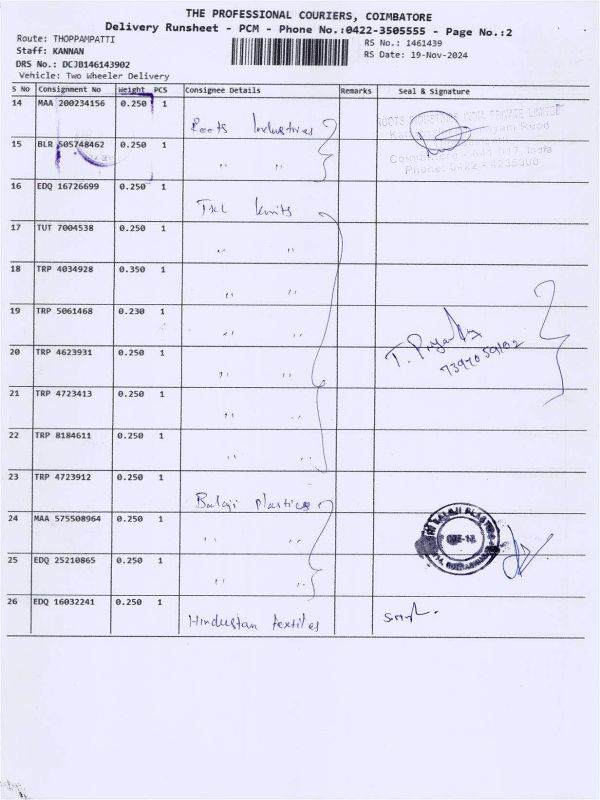 THE PROFESSIONAL COURIERS, COIMBATORE
Delivery Runsheet - PCM - Phone No.:0422-3505555 - Page No.:2
Route: THOPPAMPATTI
RS No.: 1461439
Staff: KANNAN
RS Date: 19-Nov-2024
DRS No.: DCJB146143902
Vehicle: Two Wheeler Delivery
S No Consignment No Weight PCS Consignee Details Remarks Seal & Signature
14 MAA 200234156 0.250 1
Roots Industries
ROOTS INDUSTRIES INDIA PRIVATE LIMITED
15 BLR 505748462 0.250 1
" "
Coimbatore - 641 017, India
Phone: 0422 - 4235300
16 EDQ 16726699 0.250 1
knits
17 TUT 7004538 0.250 1
" "
18 TRP 4034928 0.350 1
" "
19 TRP 5061468 0.230 1
" "
20 TRP 4623931 0.250 1
" "
21 TRP 4723413 0.250 1
" "
22 TRP 8184611 0.250 1
" "
23 TRP 4723912 0.250 1
Balaji plastics
24 MAA 575508964 0.250 1
" "
SRI BALAJI PLASTICS
25 EDQ 25210865 0.250 1
" "
26 EDQ 16032241 0.250 1
Hindustan textiles